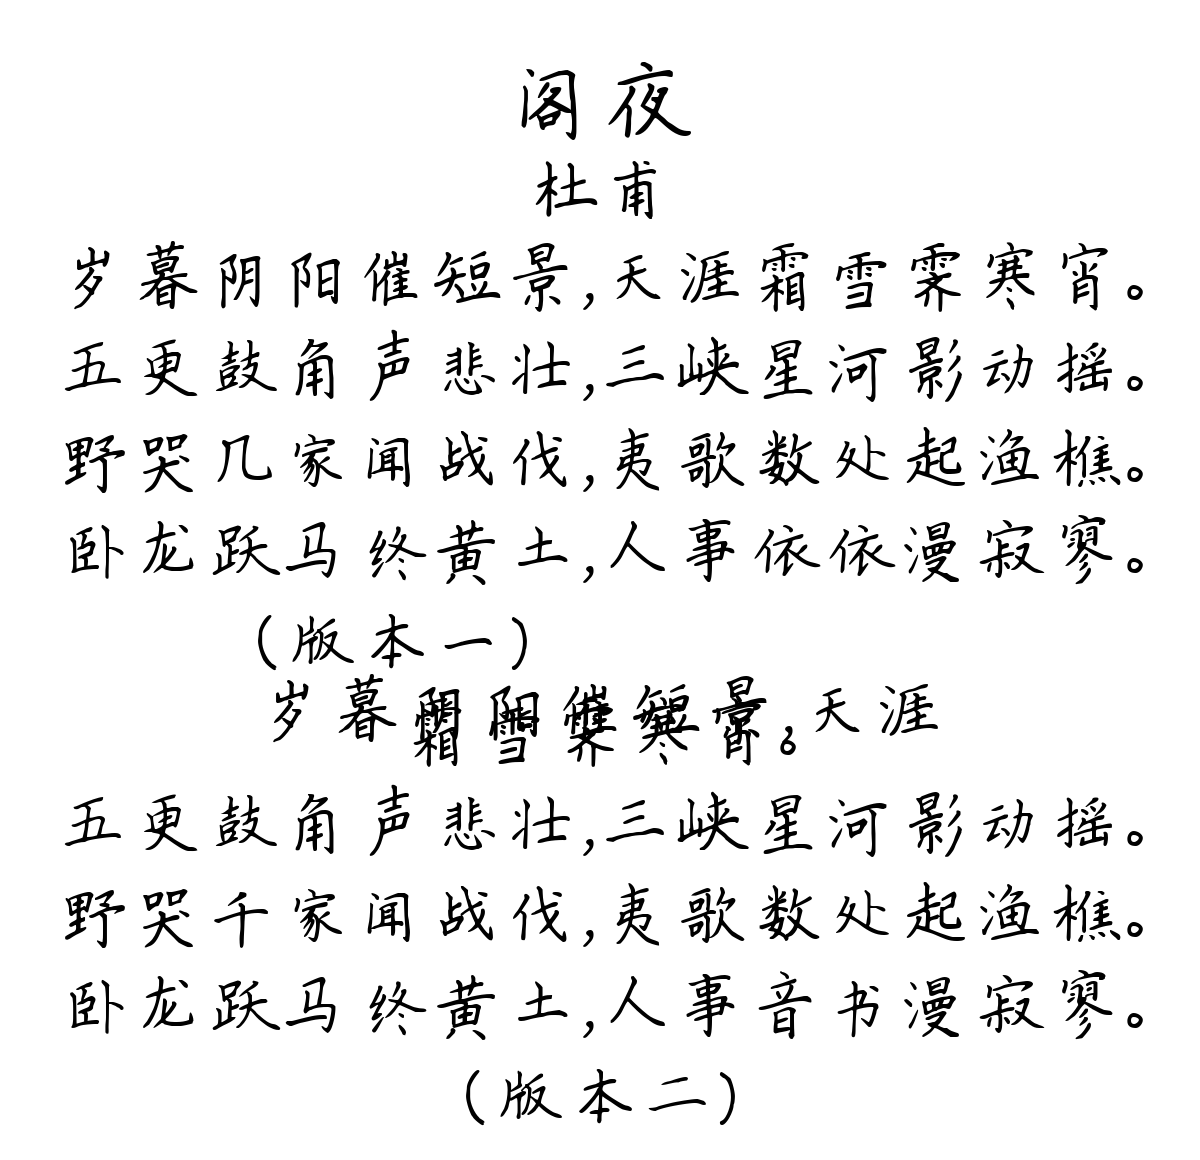 阁夜
杜甫
岁暮阴阳催短景,天涯霜雪霁寒宵。
五更鼓角声悲壮,三峡星河影动摇。
野哭几家闻战伐,夷歌数处起渔樵。
卧龙跃马终黄土,人事依依漫寂寥。
(版本一)
岁暮阴阳催短景,天涯
霜雪霁寒宵。
五更鼓角声悲壮,三峡星河影动摇。
野哭千家闻战伐,夷歌数处起渔樵。
卧龙跃马终黄土,人事音书漫寂寥。
(版本二)